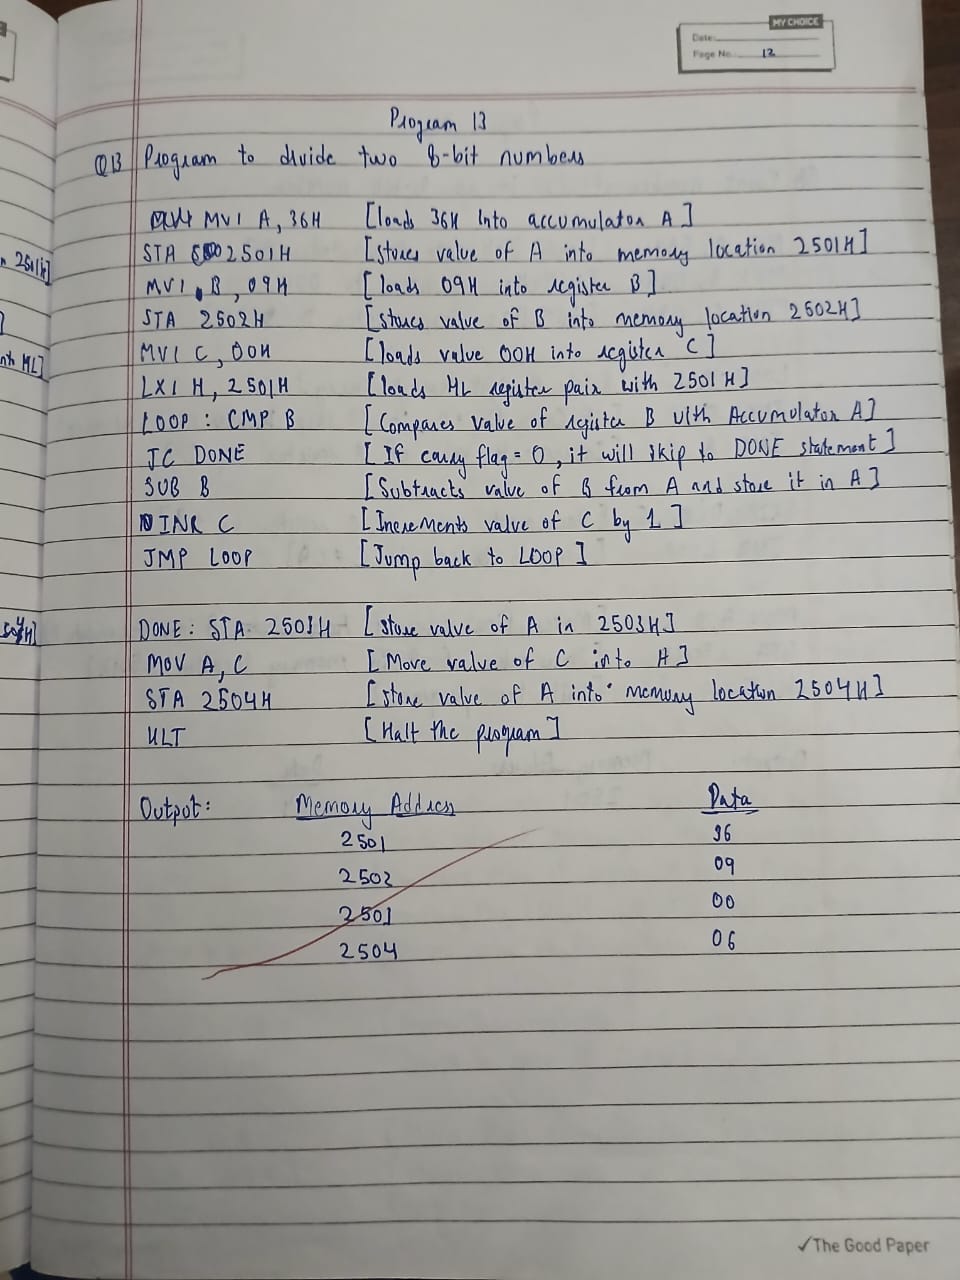 MY CHOICE
Date:
Page No. 12
Program 13
Q13 Program to divide two 8-bit numbers
MVI A, 36H [loads 36H into accumulator A]
STA 2501H [stores value of A into memory location 2501H]
n 2501H]
MVI B, 09H [loads 09H into register B]
STA 2502H [stores value of B into memory location 2502H]
]
MVI C, 00H [loads value 00H into register C]
nto HL]
LXI H, 2501H [loads HL register pair with 2501H]
LOOP : CMP B [Compares value of register B with Accumulator A]
JC DONE [If carry flag = 0, it will skip to DONE statement]
SUB B [Subtracts value of B from A and store it in A]
INR C [Increments value of C by 1]
JMP LOOP [Jump back to LOOP]
DONE : STA 2503H [store value of A in 2503H]
MOV A, C [Move value of C into H]
STA 2504H [store value of A into memory location 2504H]
HLT [Halt the program]
Output : Memory Address Data
2501 36
2502 09
2503 00
2504 06
✓The Good Paper